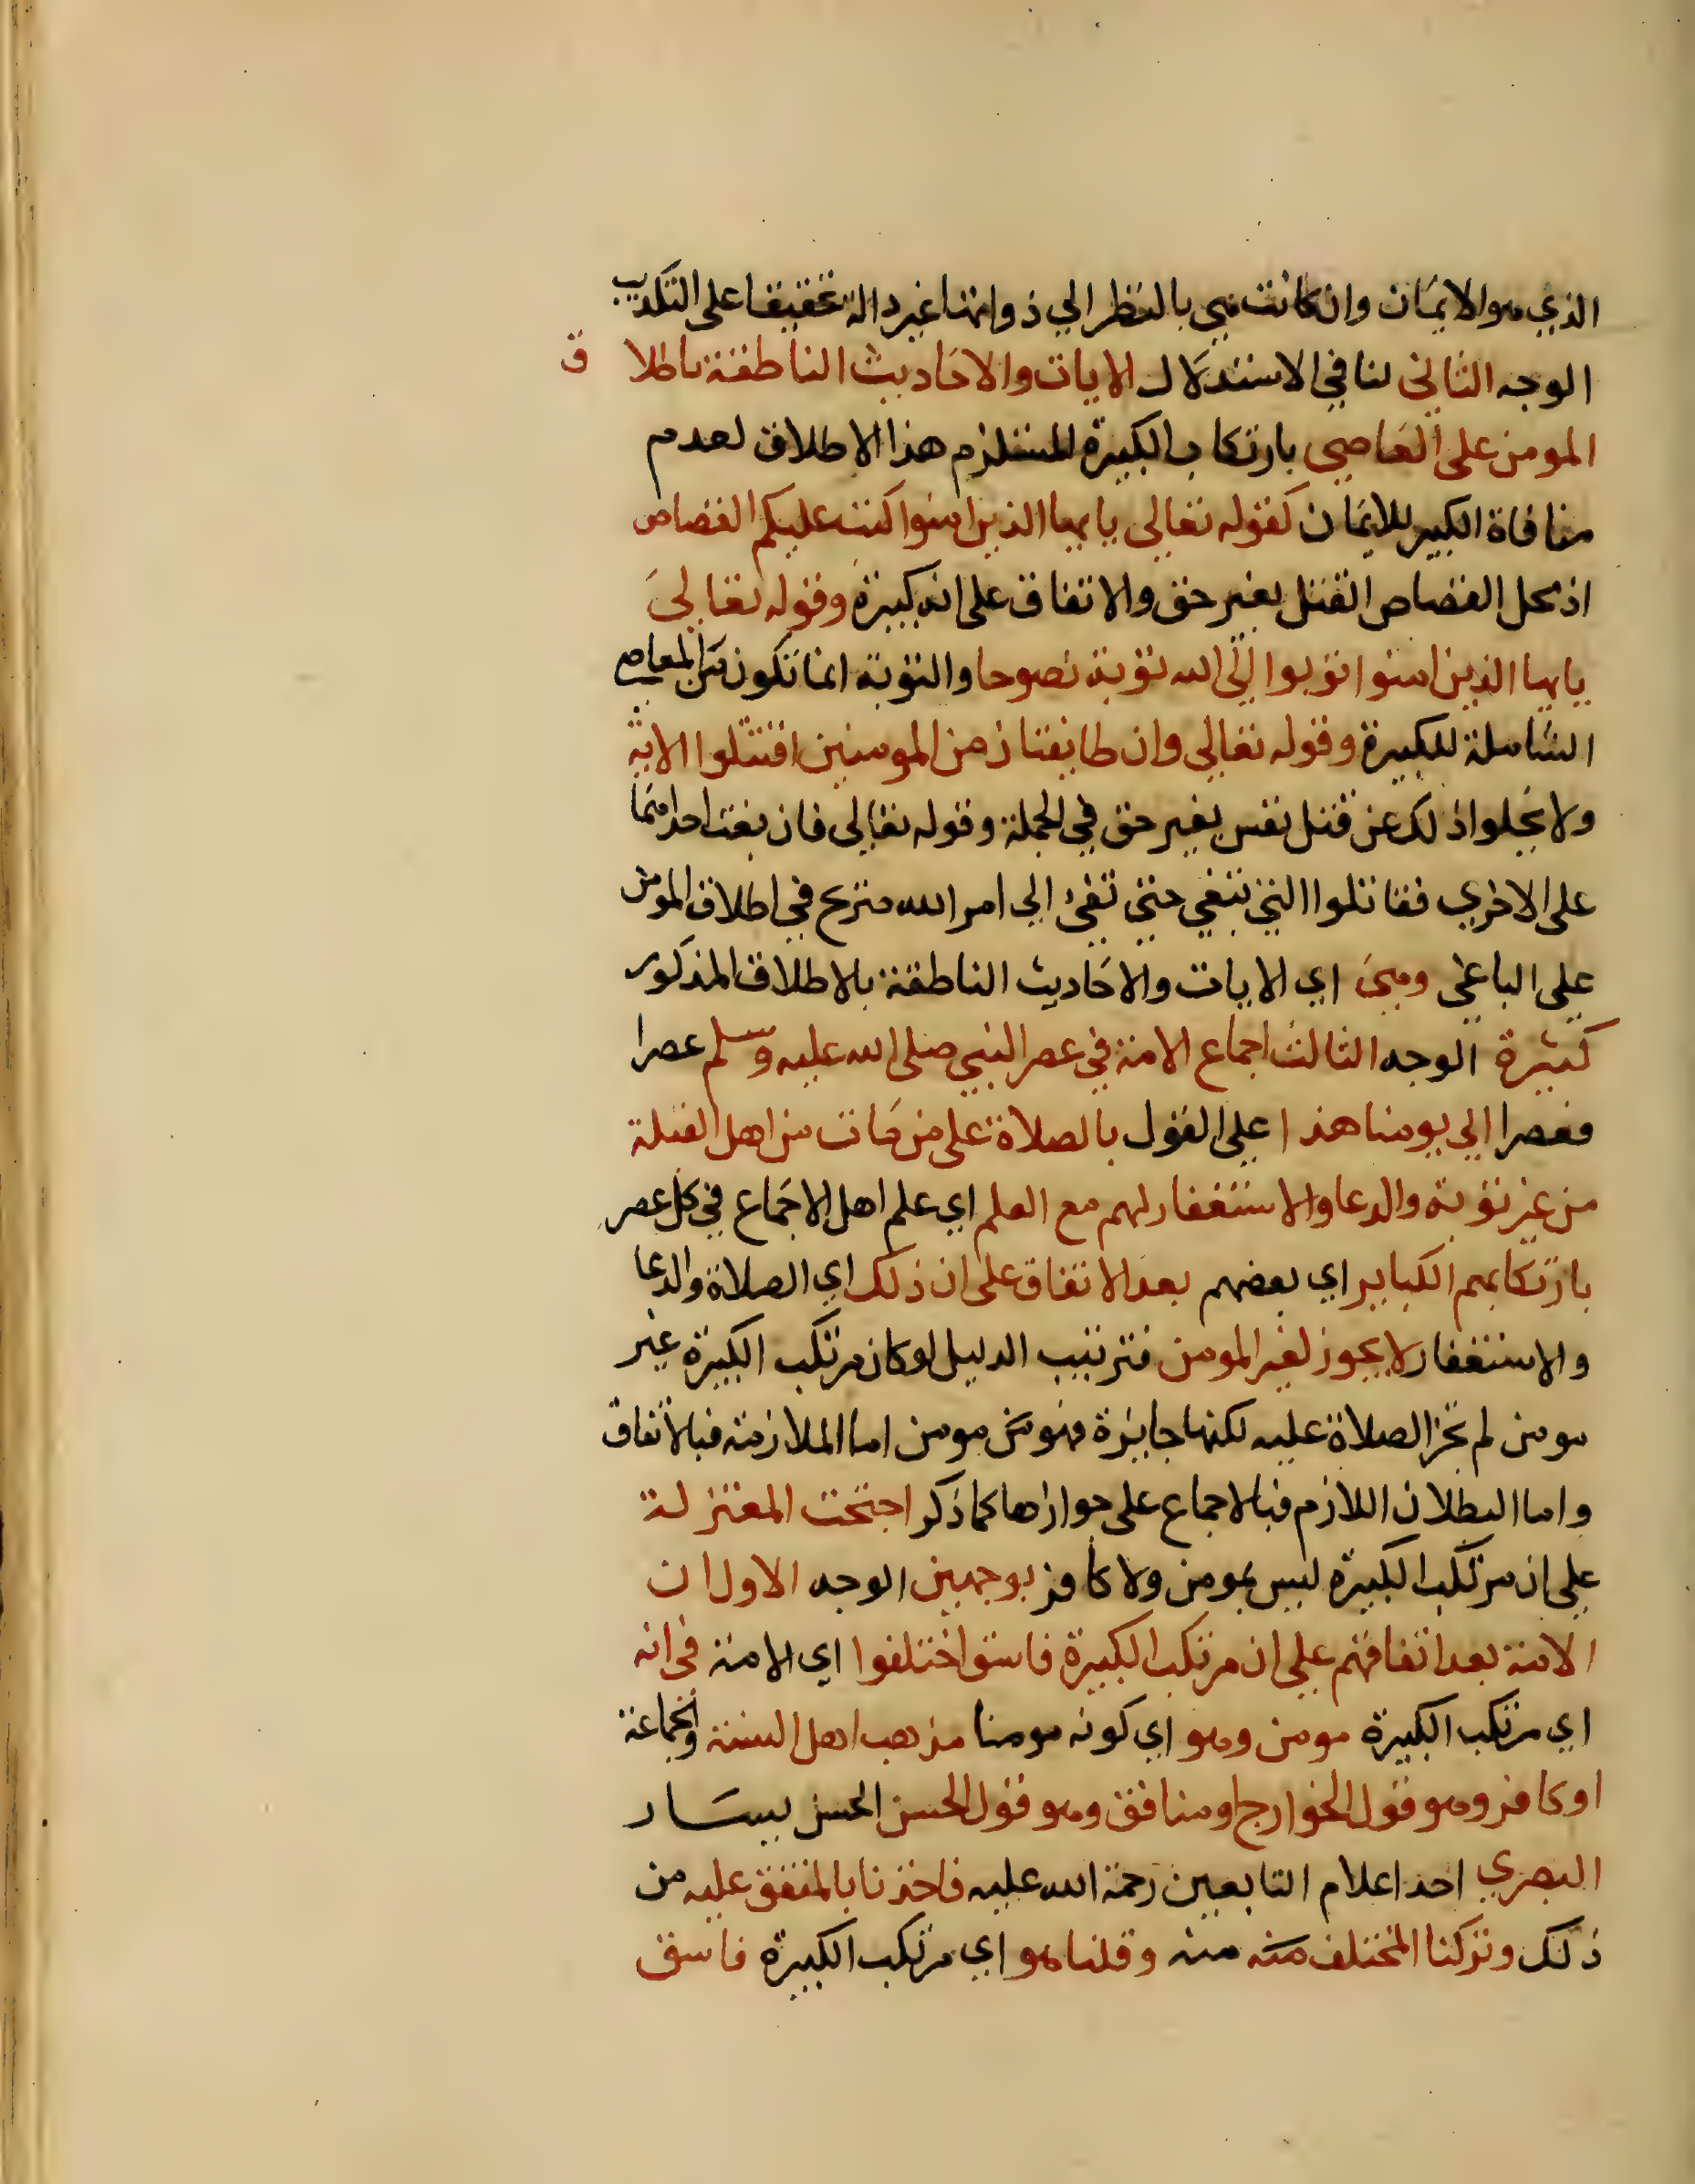 الذي هو الايمان وان كانت هي بالنظر الي ذواتها غير دالة تحقيقا على التكذيب
الوجه الثاني لنا في الاستدلال الايات والاحاديث الناطقة باطلاق
المومن على العاصي بارتكاب الكبيرة المستلزم هذا الاطلاق لعدم
منافاة الكبير للايمان كقوله تعالى يايها الذين امنوا كتب عليكم القصاص
اذ محل القصاص القتل بغير حق والاتفاق على انه كبيرة وقوله تعالى
يايها الذين امنوا توبوا الي الله توبة نصوحا والتوبة انما تكون من المعاصي
الشاملة للكبيرة وقوله تعالى وان طايفتان من المومنين اقتتلوا الاية
ولا يخلوا ذلك عن قتل نفس بغير حق في الجملة وقوله تعالى فان بغت احداهما
على الاخري فقاتلوا التي تبغي حتي تفئ الي امر الله صريح في اطلاق المومن
علي الباغي وهي اي الايات والاحاديث الناطقة بالاطلاق المذكور
كثيرة الوجه الثالث اجماع الامة في عصر النبي صلى الله عليه وسلم عصرا
فعصرا الي يومنا هذا علي القول بالصلاة على من مات من اهل القبلة
من غير توبة والدعا والاستغفار لهم مع العلم اي علم اهل الاجماع في كل عصر
بارتكابهم الكباير اي بعضهم بعد الاتفاق على ان ذلك اي الصلاة والدعا
والاستغفار لا يجوز لغير المومن فترتيب الدليل لو كان مرتكب الكبيرة غير
مومن لم تجز الصلاة عليه لكنها جايزة فهو مومن اما الملازمة فبالاتفاق
واما البطلان اللازم فبالاجماع على جوازها كما ذكر احتجت المعتزلة
علي ان مرتكب الكبيرة ليس بمومن ولا كافر بوجهين الوجه الاول ان
الامة بعد اتفاقهم علي ان مرتكب الكبيرة فاسق اختلفوا اي الامة في انه
اي مرتكب الكبيرة مومن وهو اي كونه مومنا مذهب اهل السنة والجماعة
او كافر وهو قول الخوارج او منافق وهو قول الحسن الحسن بيسار
البصري احد اعلام التابعين رحمة الله عليه فاخذنا بالمتفق عليه من
ذلك وتركنا المختلف منه وقلنا هو اي مرتكب الكبيرة فاسق